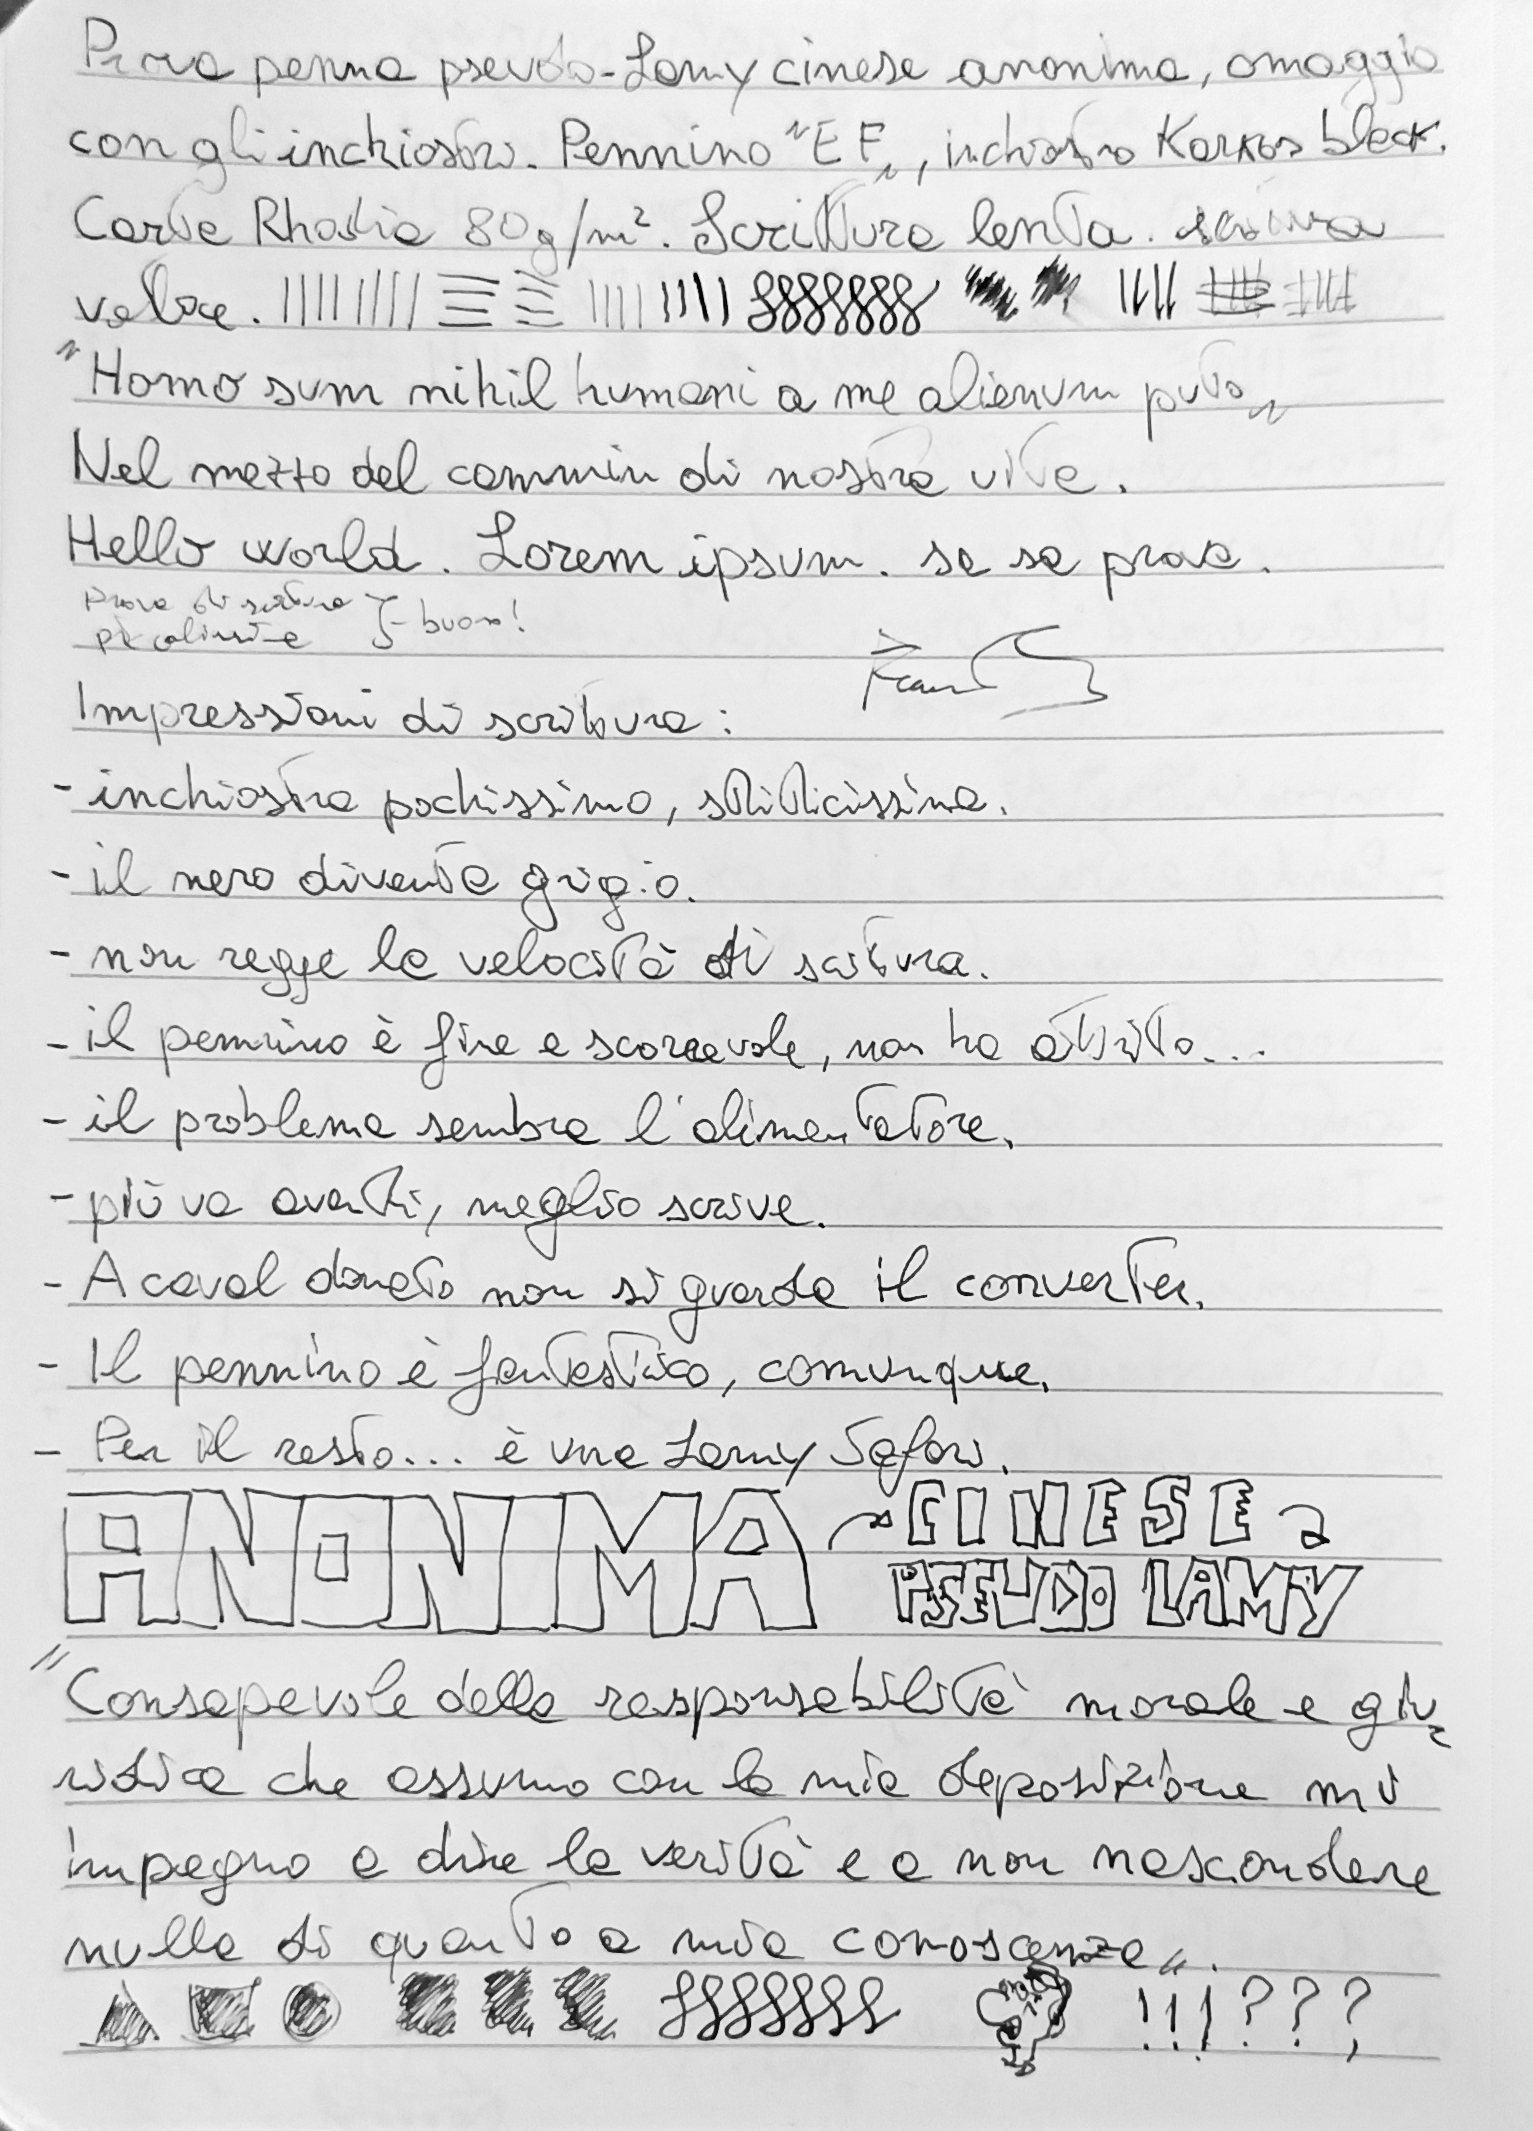 Prova penna pseudo-Lamy cinese anonima, omaggio
con gli inchiostri. Pennino "EF", inchiostro Karkos black.
Carta Rhodia 80g/m². Scrittura lenta. scrittura
veloce.
"Homo sum nihil humani a me alienum puto"
Nel mezzo del cammin di nostra vita.
Hello world. Lorem ipsum. sa sa prova.
Prova di scrittura } - buona!
piccolissima
Impressioni di scrittura:
- inchiostra pochissimo, stiticissima.
- il nero diventa grigio.
- non regge la velocità di scrittura.
- il pennino è fine e scorrevole, non ha attrito...
- il problema sembra l'alimentatore.
- più va avanti, meglio scrive.
- A caval donato non si guarda il converter.
- Il pennino è fantastico, comunque.
- Per il resto... è una Lamy Safari.
ANONIMA CINESE
PSEUDO LAMY
"Consapevole della responsabilità morale e giu=
ridica che assumo con la mia deposizione mi
impegno a dire la verità e a non nascondere
nulla di quanto a mia conoscenza".
!!!???